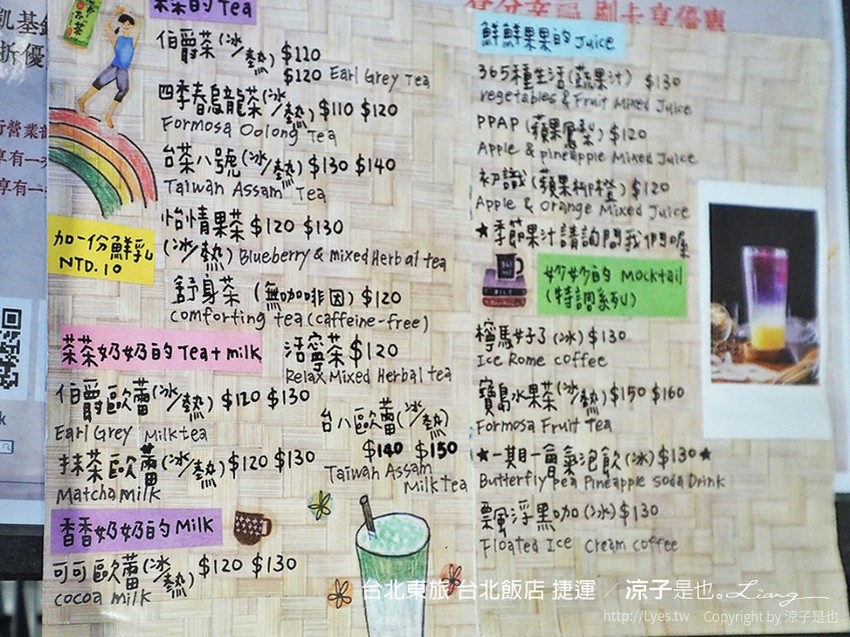 茶茶的 Tea
伯爵茶(冰/熱) $110
$120 Earl Grey Tea
四季春烏龍茶(冰/熱) $110 $120
Formosa Oolong Tea
台茶八號(冰/熱) $130 $140
Taiwan Assam Tea
怡情果茶 $120 $130
(冰/熱) Blueberry & mixed Herbal tea
加一份鮮乳
NTD.10
舒身茶 (無咖啡因) $120
comforting tea (caffeine-free)
茶茶奶奶的 Tea + milk
活寧茶 $120
Relax Mixed Herbal tea
伯爵歐蕾(冰/熱) $120 $130
Earl Grey Milktea
台八歐蕾(冰/熱)
$140 $150
Taiwan Assam
Milk Tea
抹茶歐蕾(冰/熱) $120 $130
Matcha milk
香香奶奶的 Milk
可可歐蕾(冰/熱) $120 $130
cocoa milk
鮮鮮果果的 Juice
365種生活(蔬果汁) $130
vegetables & Fruit Mixed Juice
PPAP (蘋果鳳梨) $120
Apple & pineapple Mixed Juice
初識 (蘋果柳橙) $120
Apple & Orange Mixed Juice
★季節果汁請詢問我們喔
妙妙的 Mocktail
(特調系列)
檸馬好了(冰) $130
Ice Rome coffee
寶島水果茶(冰/熱) $150 $160
Formosa Fruit Tea
★一期一會氣泡飲(冰) $130★
Butterfly Pea Pineapple soda Drink
飄浮黑咖(冰) $130
Floated Ice Cream coffee
台北東旅 台北飯店 捷運 / 涼子是也。Liang
http://Lyes.tw Copyright by 涼子是也